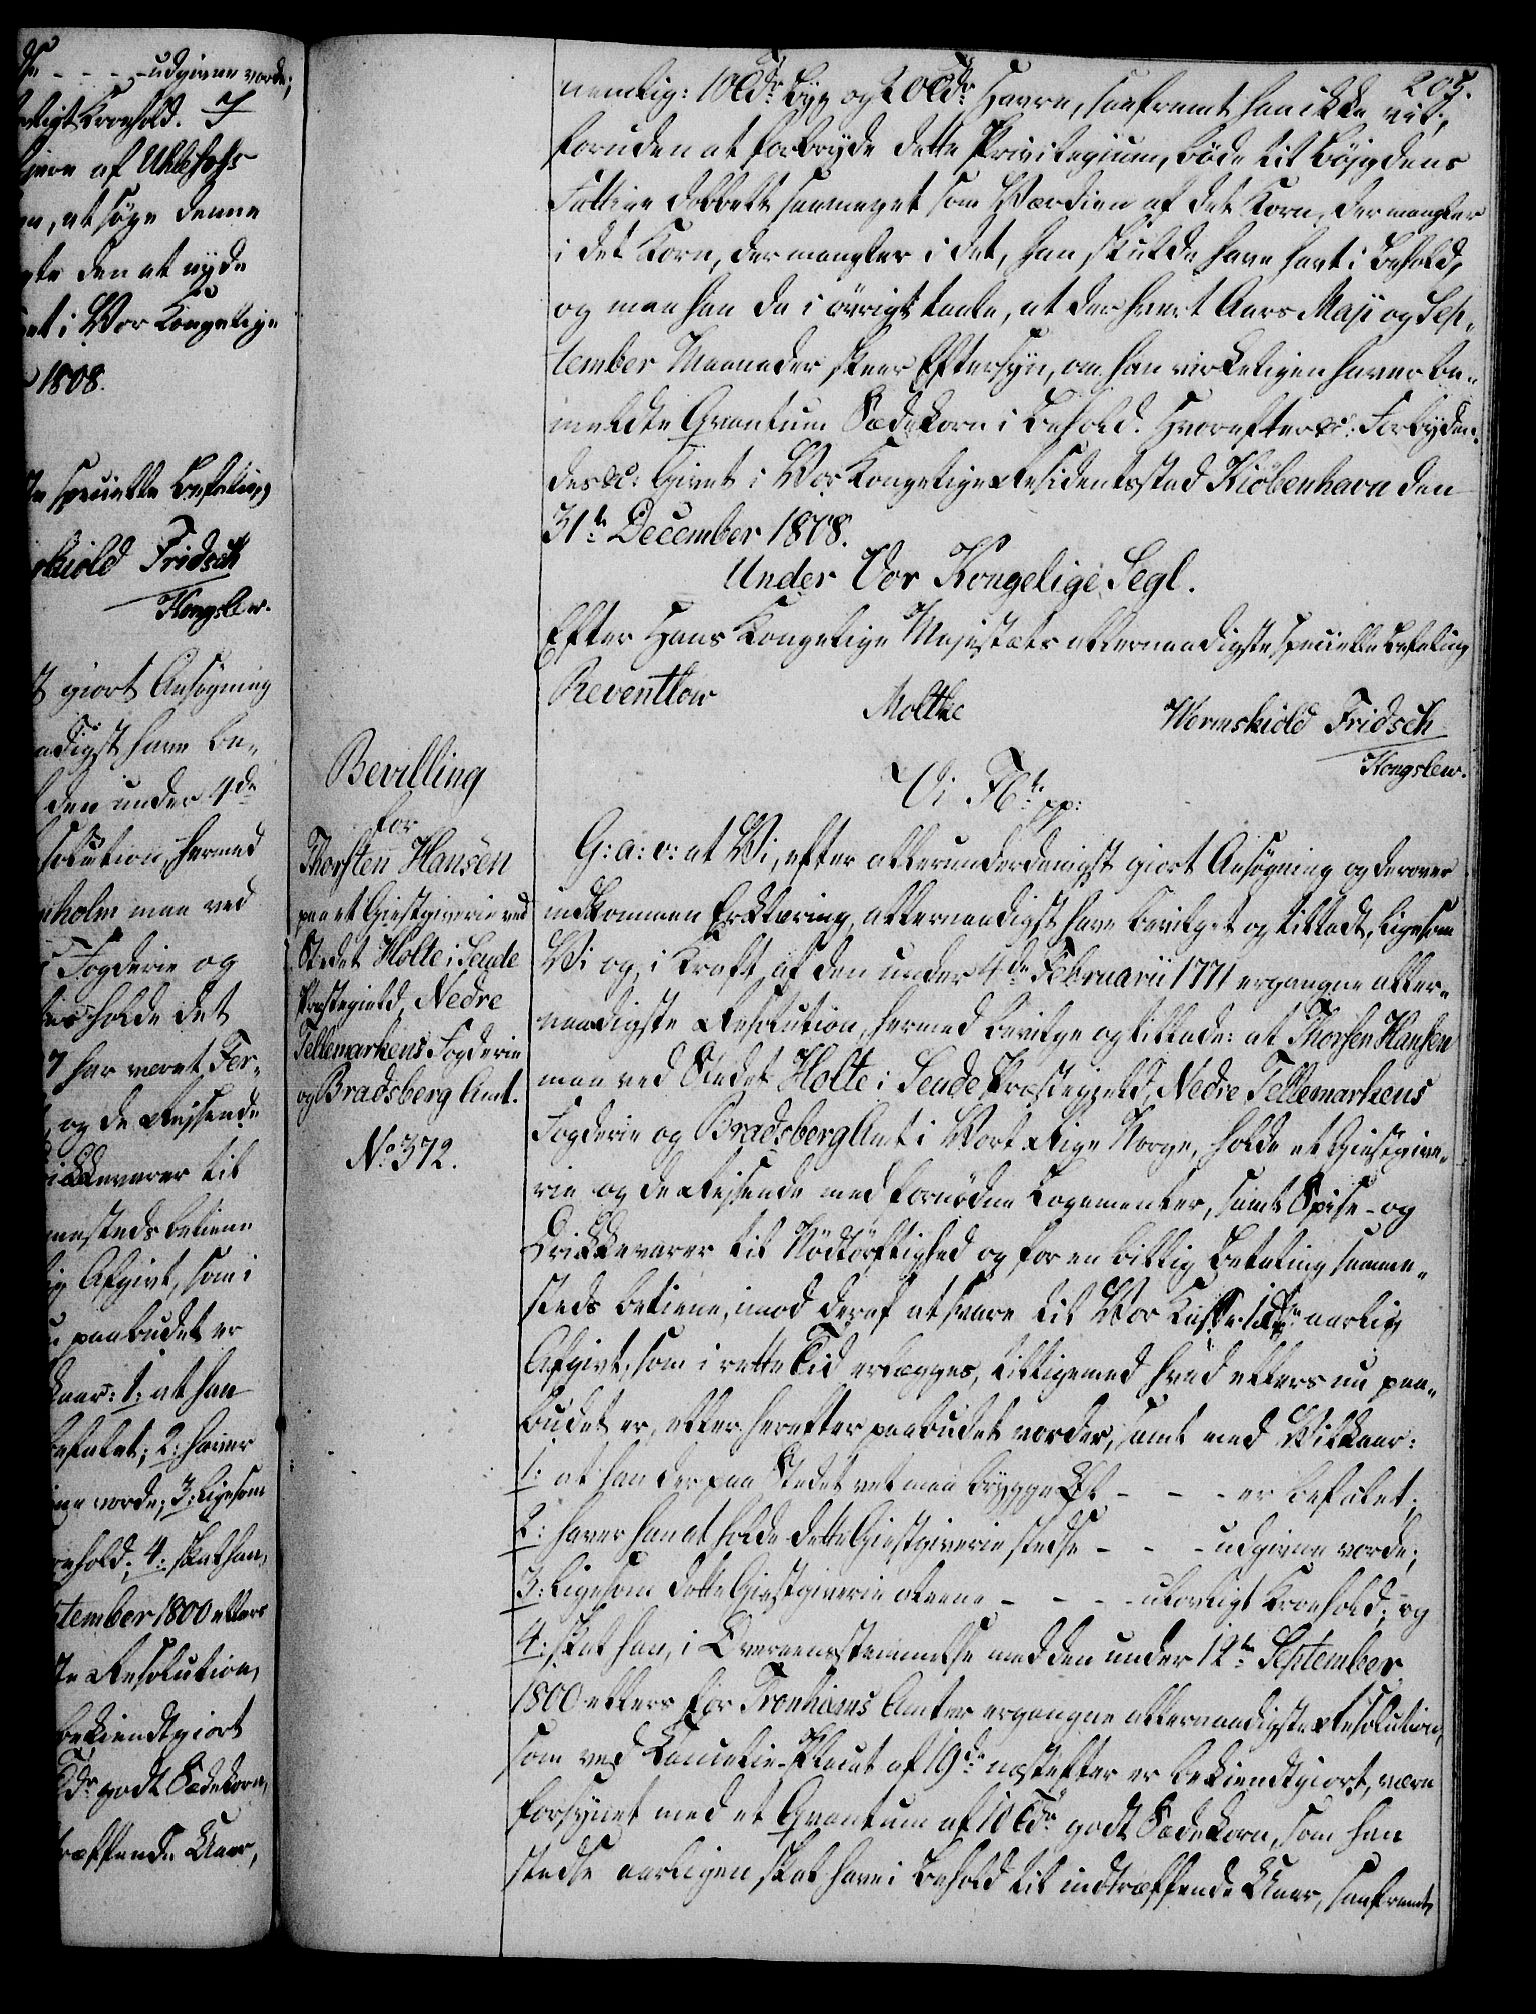 de - - - udgivne vorde;
Kroehold. I
Ejere af Uhlefofs
at søge denne
den at nyde
i Vor Kongelige
1808.
specielle Befaling
skiold Fridsch
Kongslew.
giort Ansøgning
have be-
den under 4de
solution, hermed
holm maa ved
Fogderie og
holde det
har været For-
og de Reisende
Drikkevarer til
sammesteds betiene
Afgivt, som i
paabudet er
1: at han
befalet; 2: haver
vorde; 3: Ligesom
Kroehold; 4: skal han,
September 1800 ellers
Resolution,
bekiendtgiort
Tdr godt Sædekorn,
indtræffende Uaar,
205.
nemlig: 10 Tdr Byg og 20 Tdr Havre, saafremt han ikke vil,
foruden at forbryde dette Privilegium, bøde til Bøigdens
Fattige dobbelt saameget som Værdien af det Korn, der mangler
i det Korn, der mangler i det, han skulde have havt i Behold,
og maa han da i øvrigt taale, at der hvert Aars Maji og Sep-
tember Maaneder skeer Eftersyn, om han virkeligen haver be-
meldte Qvantum Sædekorn i Behold. Hvorefter &c: Forbyden-
des &c: Givet i Vor Kongelige Residentsstad Kiøbenhavn den
31te December 1808.
Under Vor Kongelige Segl.
Efter Hans Kongelige Majestæts allernaadigste specielle Befaling
Reventlow Moltke Wormskiold Fridsch
Kongslew.
Bevilling
for
Thorsten Hansen
paa et Giestgiverie ved
Stedet Holte i Seude
Præstegield, Nedre
Tellemarkens Fogderie
og Bradsberg Amt.
No 372.
Vi Fr. 6te pp:
G: a: v: at Vi, efter allerunderdanigst giort Ansøgning og derover
indkommen Erklæring, allernaadigst have bevilget og tilladt, ligesom
Vi og, i Kraft af den under 4de Februarii 1771 ergangne aller-
naadigste Resolution, hermed bevilge og tillade: at Thorsten Hansen
maa ved Stedet Holte i Seude Præstegield, Nedre Tellemarkens
Fogderie og Bradsberg Amt i Vort Rige Norge, holde et Giestgive-
rie og de Reisende med fornødne Logementer, samt Spise- og
Drikkevarer til Nødtørftighed og for en billig Betaling samme-
steds betiene, imod deraf at svare til Vor Kasse 1 Rdr aarlig
Afgivt, som i rette Tid erlægges, tilligemed hvad ellers nu paa-
budet er, eller herefter paabudet vorder, samt med Vilkaar:
1: at han der paa Stedet vel maa brygge Øl - - - er befalet;
2: haver han at holde dette Giestgiverie stedse - - - udgivne vorde;
3: Ligesom dette Giestgiverie alene - - - - ulovligt Kroehold; og
4: skal han, i Overeensstemmelse med den under 12te September
1800 ellers for Tronhiems Amter ergangne allernaadigste Resolution,
som ved Cancellie-Placat af 19de næstefter er bekiendtgiort, være
forsynet med et Qvantum af 10 Tdr godt Sædekorn, som han
stedse aarligen skal have i Behold til indtræffende Uaar, saafremt